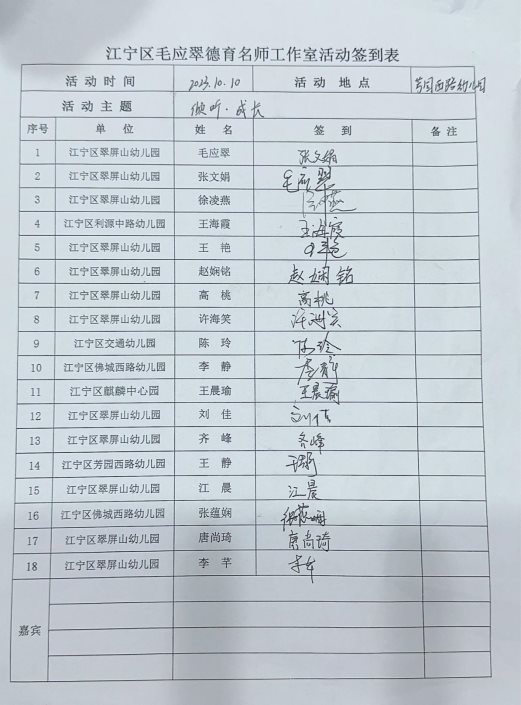 江宁区毛应翠德育名师工作室活动签到表
活动时间 2023.10.10 活动地点 芳园西路幼儿园
活动主题 倾听·成长
序号 单位 姓名 签到 备注
1 江宁区翠屏山幼儿园 毛应翠 张文娟
2 江宁区翠屏山幼儿园 张文娟 毛应翠
3 江宁区翠屏山幼儿园 徐凌燕
4 江宁区利源中路幼儿园 王海霞 王海霞
5 江宁区翠屏山幼儿园 王艳
6 江宁区翠屏山幼儿园 赵娴铭 赵娴铭
7 江宁区翠屏山幼儿园 高桃 高桃
8 江宁区翠屏山幼儿园 许海笑 许海笑
9 江宁区交通幼儿园 陈玲 陈玲
10 江宁区佛城西路幼儿园 李静 李静
11 江宁区麒麟中心园 王晨瑜 王晨瑜
12 江宁区翠屏山幼儿园 刘佳 刘佳
13 江宁区翠屏山幼儿园 齐峰 齐峰
14 江宁区芳园西路幼儿园 王静 王静
15 江宁区翠屏山幼儿园 江晨 江晨
16 江宁区佛城西路幼儿园 张蕴娴 张蕴娴
17 江宁区翠屏山幼儿园 唐尚琦 唐尚琦
18 江宁区翠屏山幼儿园 李芊 李芊
嘉宾